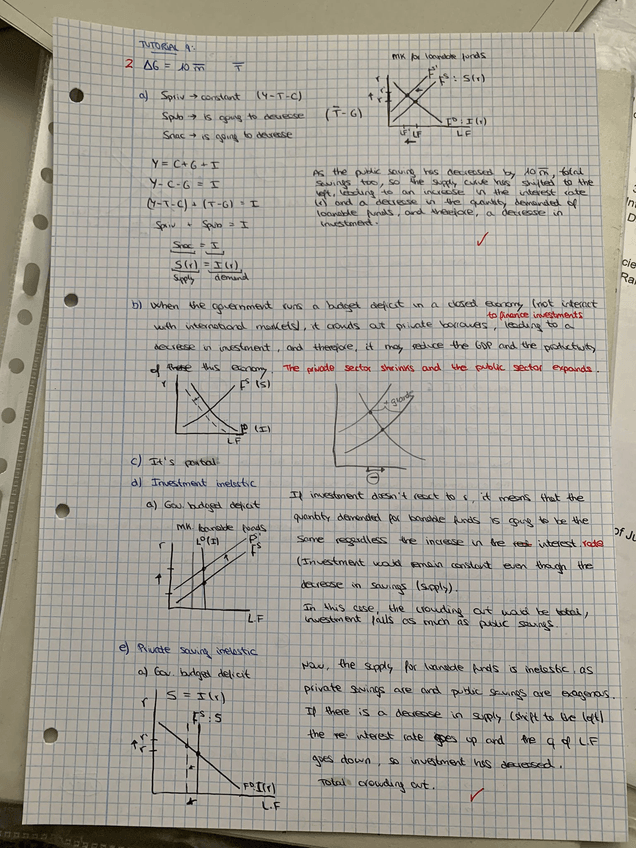 TUTORIAL 4:
2 ΔG = 10 m T̄
mk for loanable funds
a) Spriv → constant (Y-T-C)
Spub → is going to decrease (T̄-G)
Snac → is going to decrease
r
F^S'
F^S: S(r)
F^D: I(r)
LF' LF
LF
Y = C+G+I
Y-C-G = I
(Y-T-C) + (T-G) = I
Spriv + Spub = I
Snac = I
S(r) = I(r)
supply demand
As the public saving has decreased by 10 m, total
savings too, so the supply curve has shifted to the
left, leading to an increase in the interest rate
(r) and a decrease in the quantity demanded of
loanable funds, and therefore, a decrease in
investment.
b) When the government runs a budget deficit in a closed economy (not interact
to finance investments
with international markets), it crowds out private borrowers, leading to a
decrease in investment, and therefore, it may reduce the GDP and the productivity
of these this economy. The private sector shrinks and the public sector expands.
r
F^S (S)
F^D (I)
LF
c) It's partial
d) Investment inelastic
a) Gov. budged deficit
mk. loanable funds
r
L^D(I)
F^S
L.F
If investment doesn't react to r, it means that the
quantity demanded for loanable funds is going to be the
same regardless the increase in the interest rate
(Investment would remain constant even though the
decrease in savings (supply).
In this case, the crowding out would be total,
investment falls as much as public savings.
e) Private saving inelastic
a) Gov. budged deficit
S = I(r)
r
F^S: S
r'
r
F^D: I(r)
L.F
Now, the supply for loanable funds is inelastic, as
private savings are and public savings are exogenous.
If there is a decrease in supply (shift to the left)
the re interest rate goes up and the q of L.F
goes down, so investment has decreased.
Total crowding out.